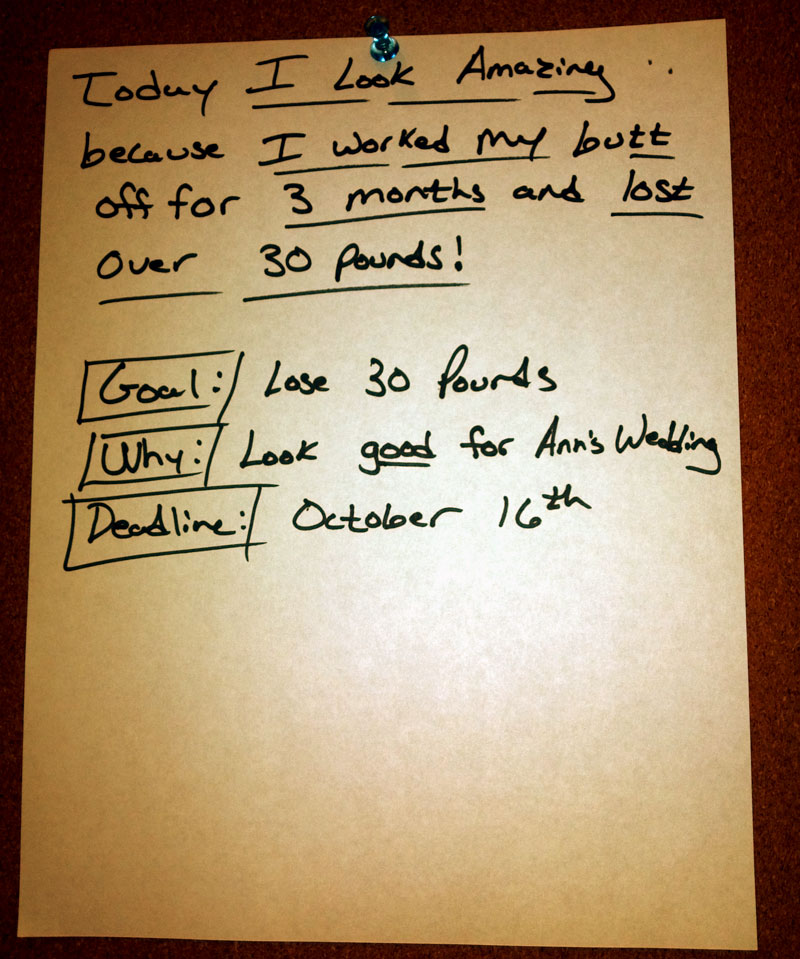 Today I Look Amazing ..
because I worked my butt
off for 3 months and lost
over 30 pounds!
Goal: Lose 30 Pounds
Why: Look good for Ann's Wedding
Deadline: October 16th